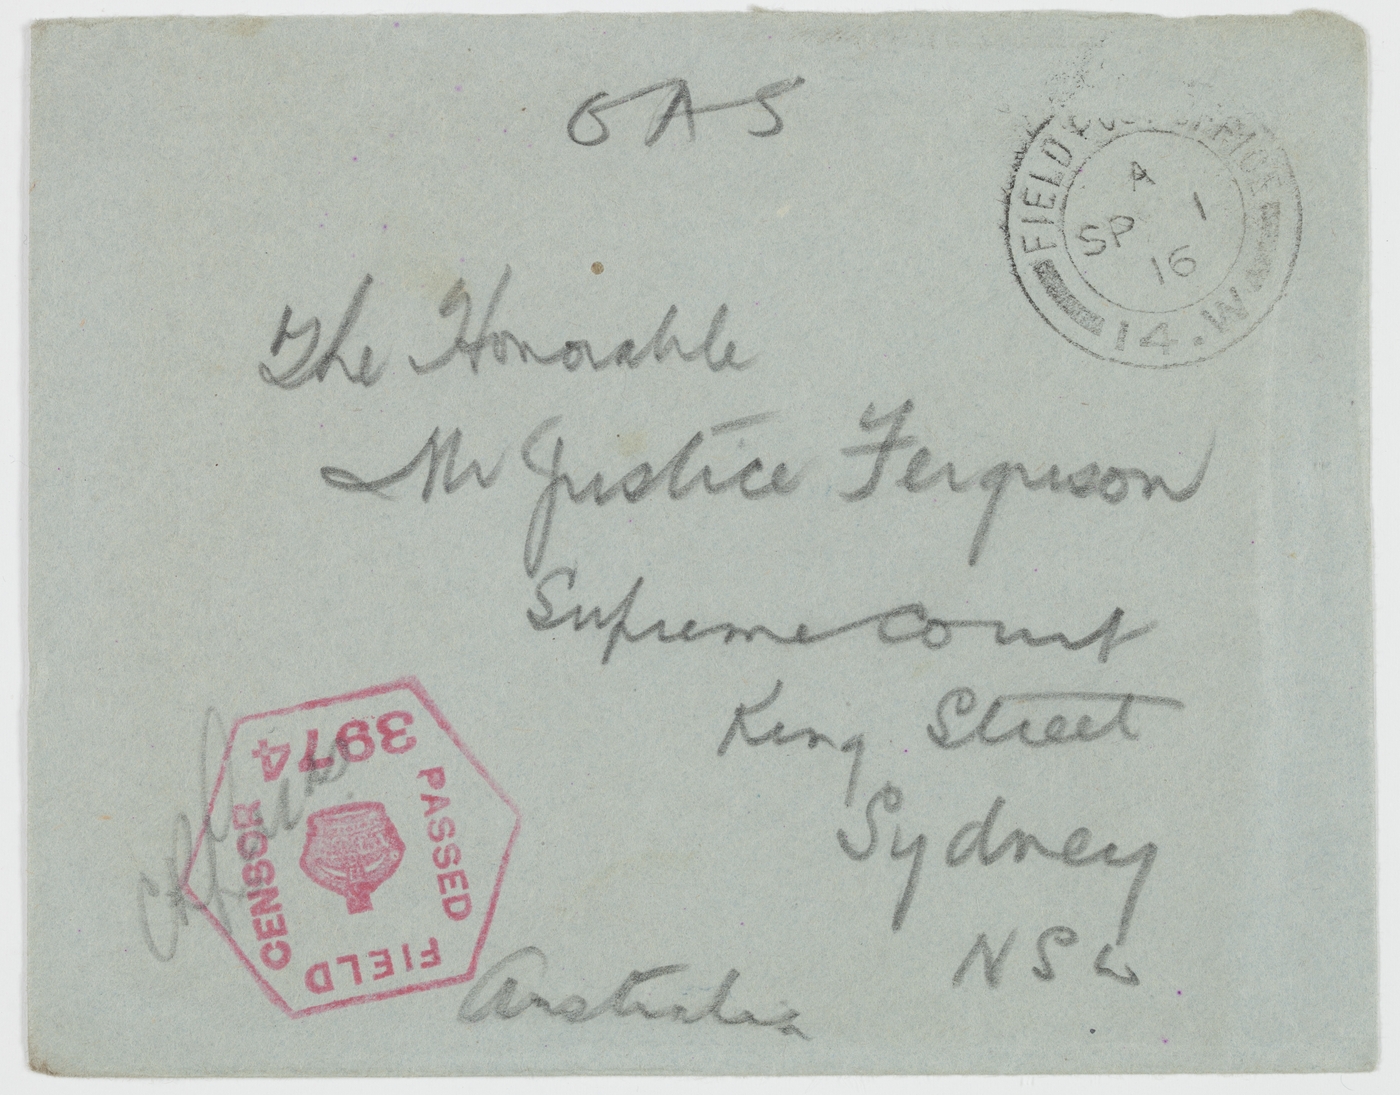 OAS
FIELD POST OFFICE
A
SP 1
16
14.W
The Honorable
Mr Justice Ferguson
Supreme Court
King Street
Sydney
NSW
Australia
PASSED
FIELD
CENSOR
3974